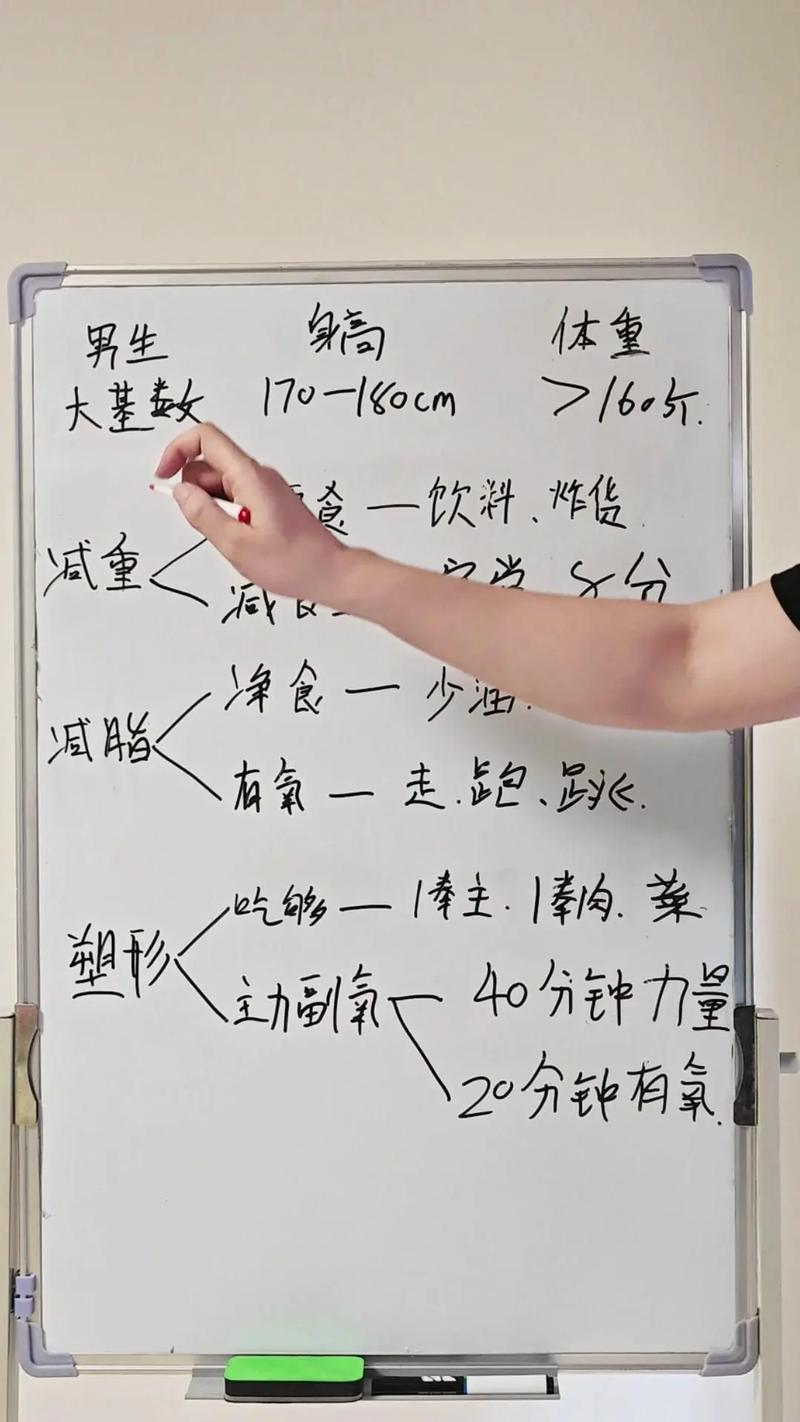 男生 身高 体重
大基数 170—180cm >160斤.
食 — 饮料、炸货.
减重
减食 8分
净食 — 少油.
减脂
有氧 — 走.跑、跳.
吃够 — 1拳主.1拳肉.菜
塑形
主力副氧 — 40分钟力量
20分钟有氧.